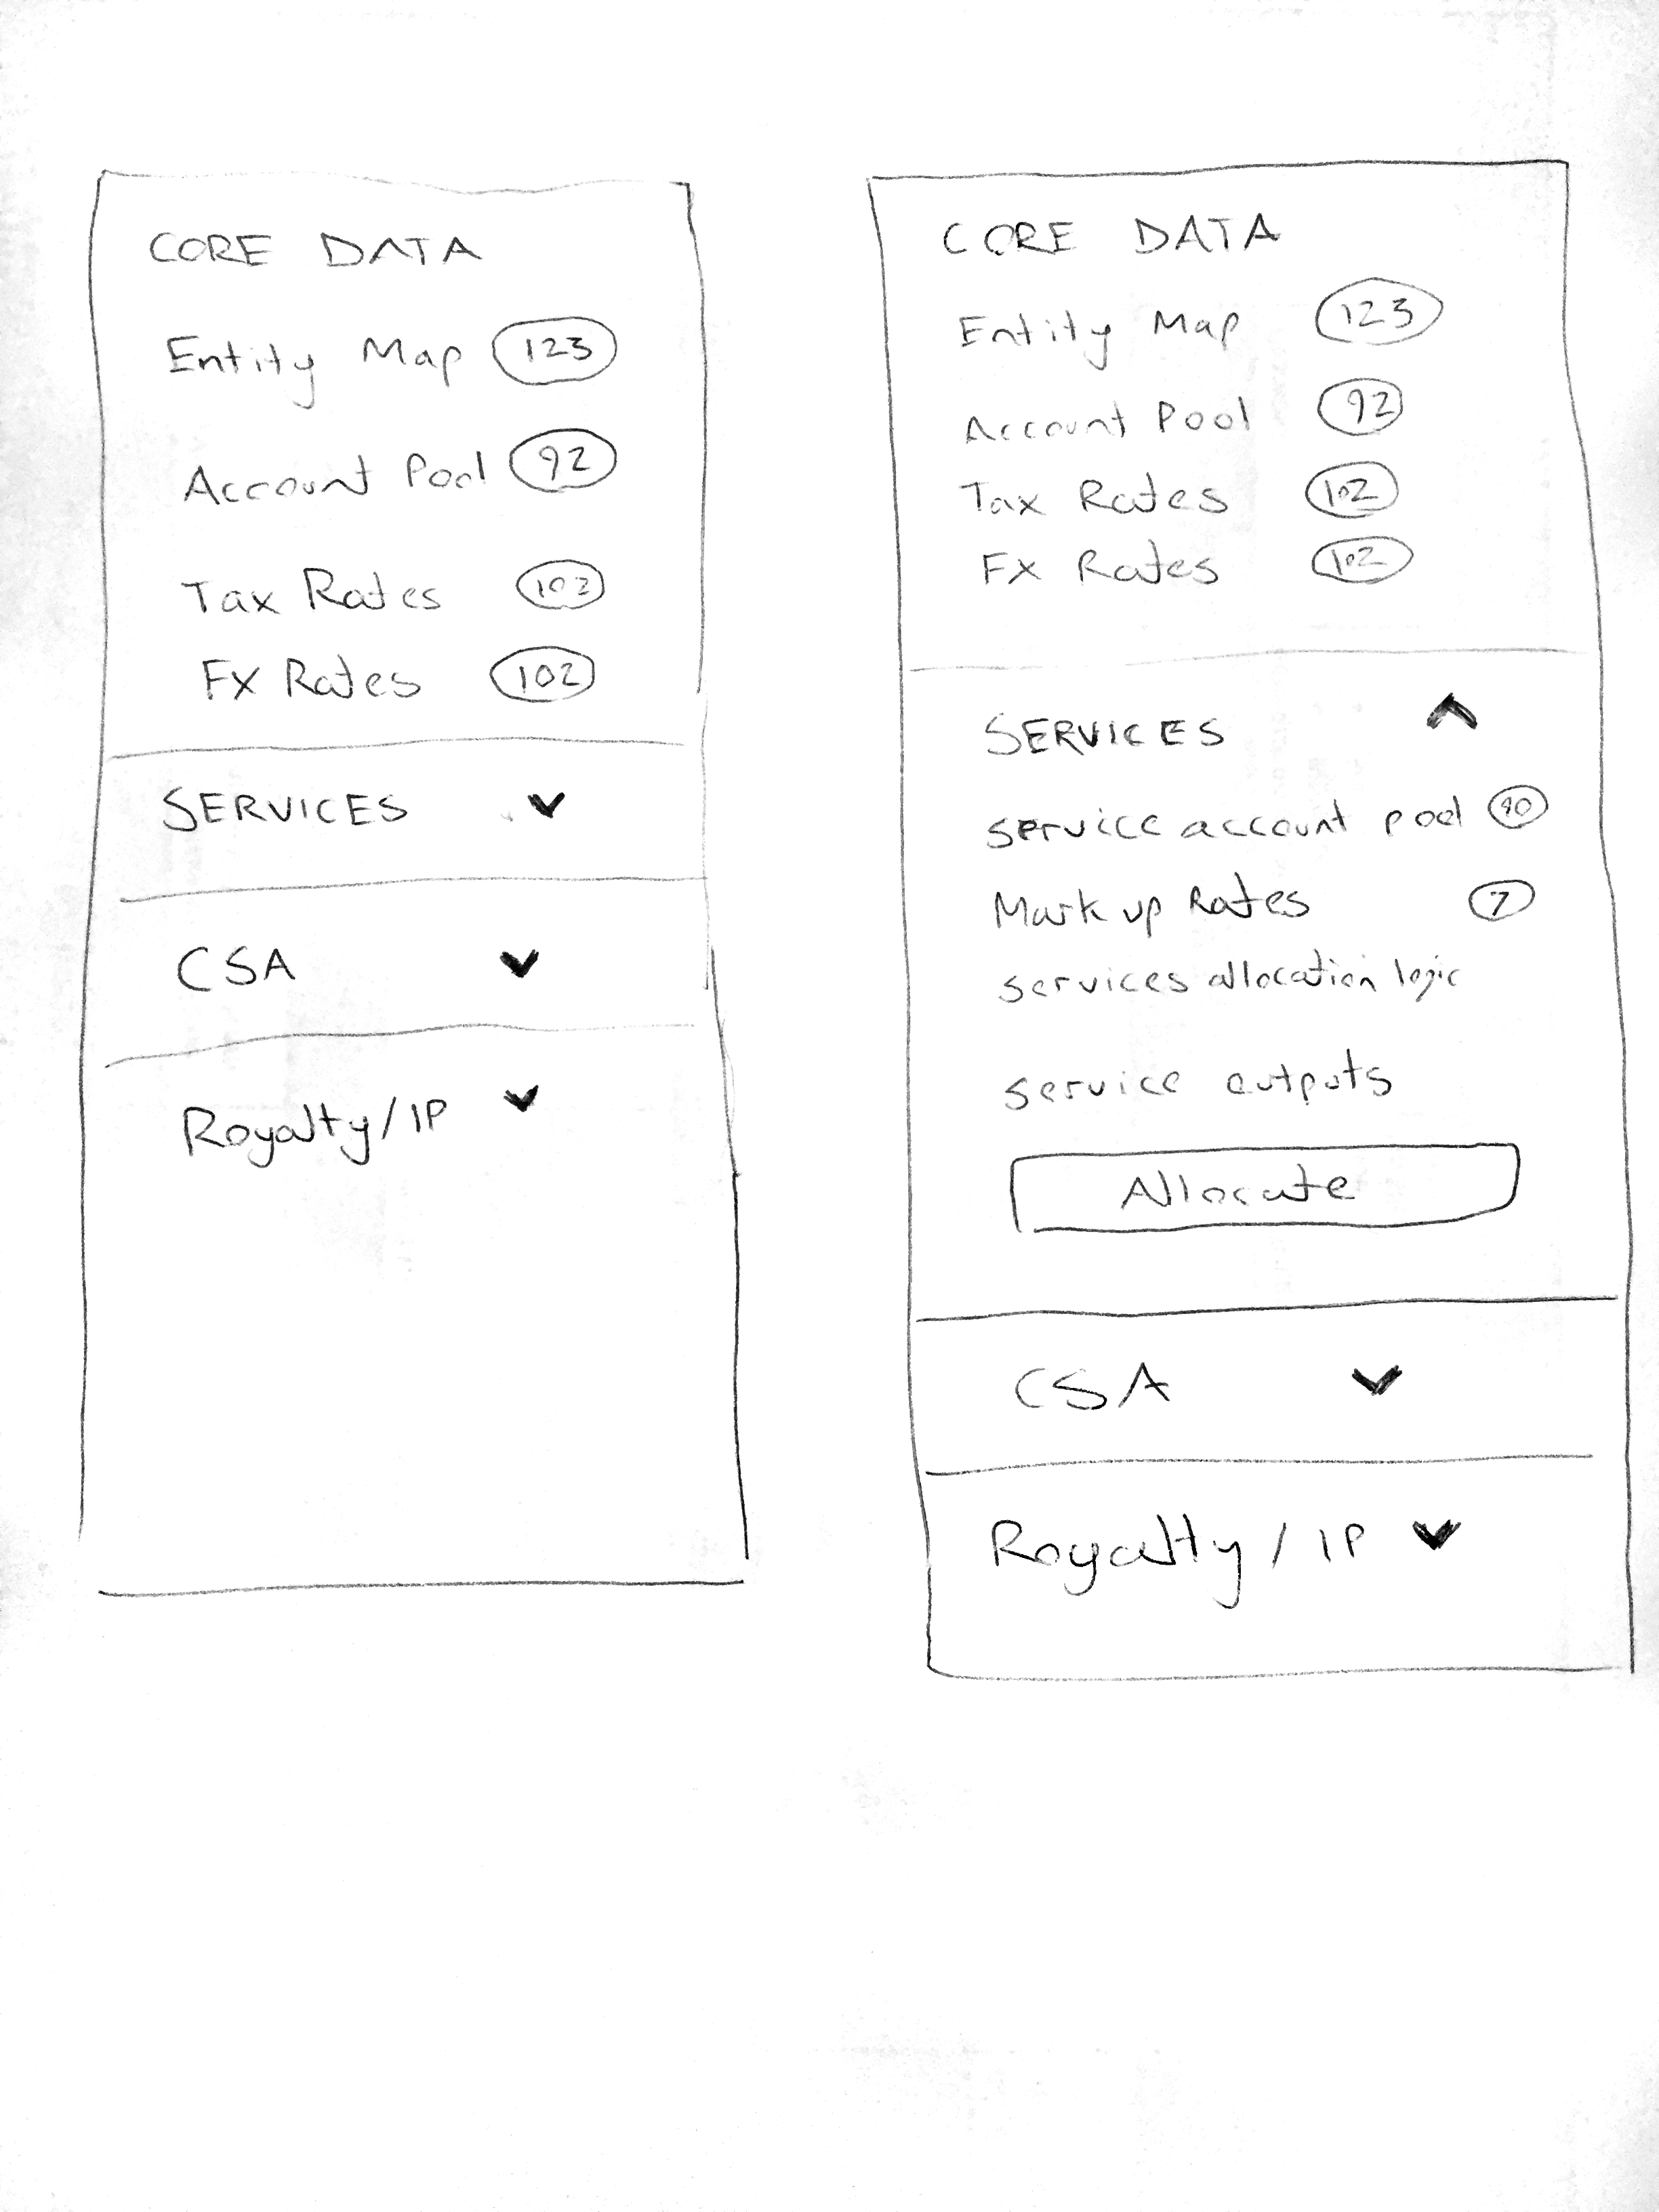 CORE DATA
Entity Map 123
Account Pool 92
Tax Rates 102
FX Rates 102
SERVICES
CSA
Royalty/IP
CORE DATA
Entity Map 123
Account Pool 92
Tax Rates 102
FX Rates 102
SERVICES
service account pool
Mark up Rates 7
services allocation logic
service outputs
Allocate
CSA
Royalty / IP